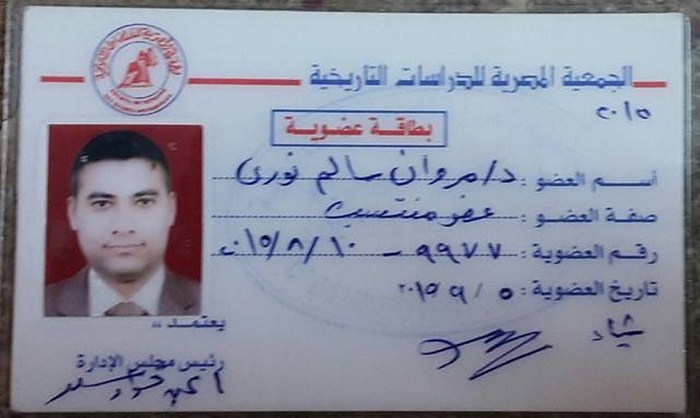 الجمعية المصرية للدراسات التاريخية
٢٠١٥
بطاقة عضوية
اسم العضو : د/ مروان سالم نورى
صفة العضو : عضو منتسب
رقم العضوية : ٩٩٧٧ -
تاريخ العضوية : ٥ / ٩ / ٢٠١٥
يعتمد ،،
رئيس مجلس الإدارة